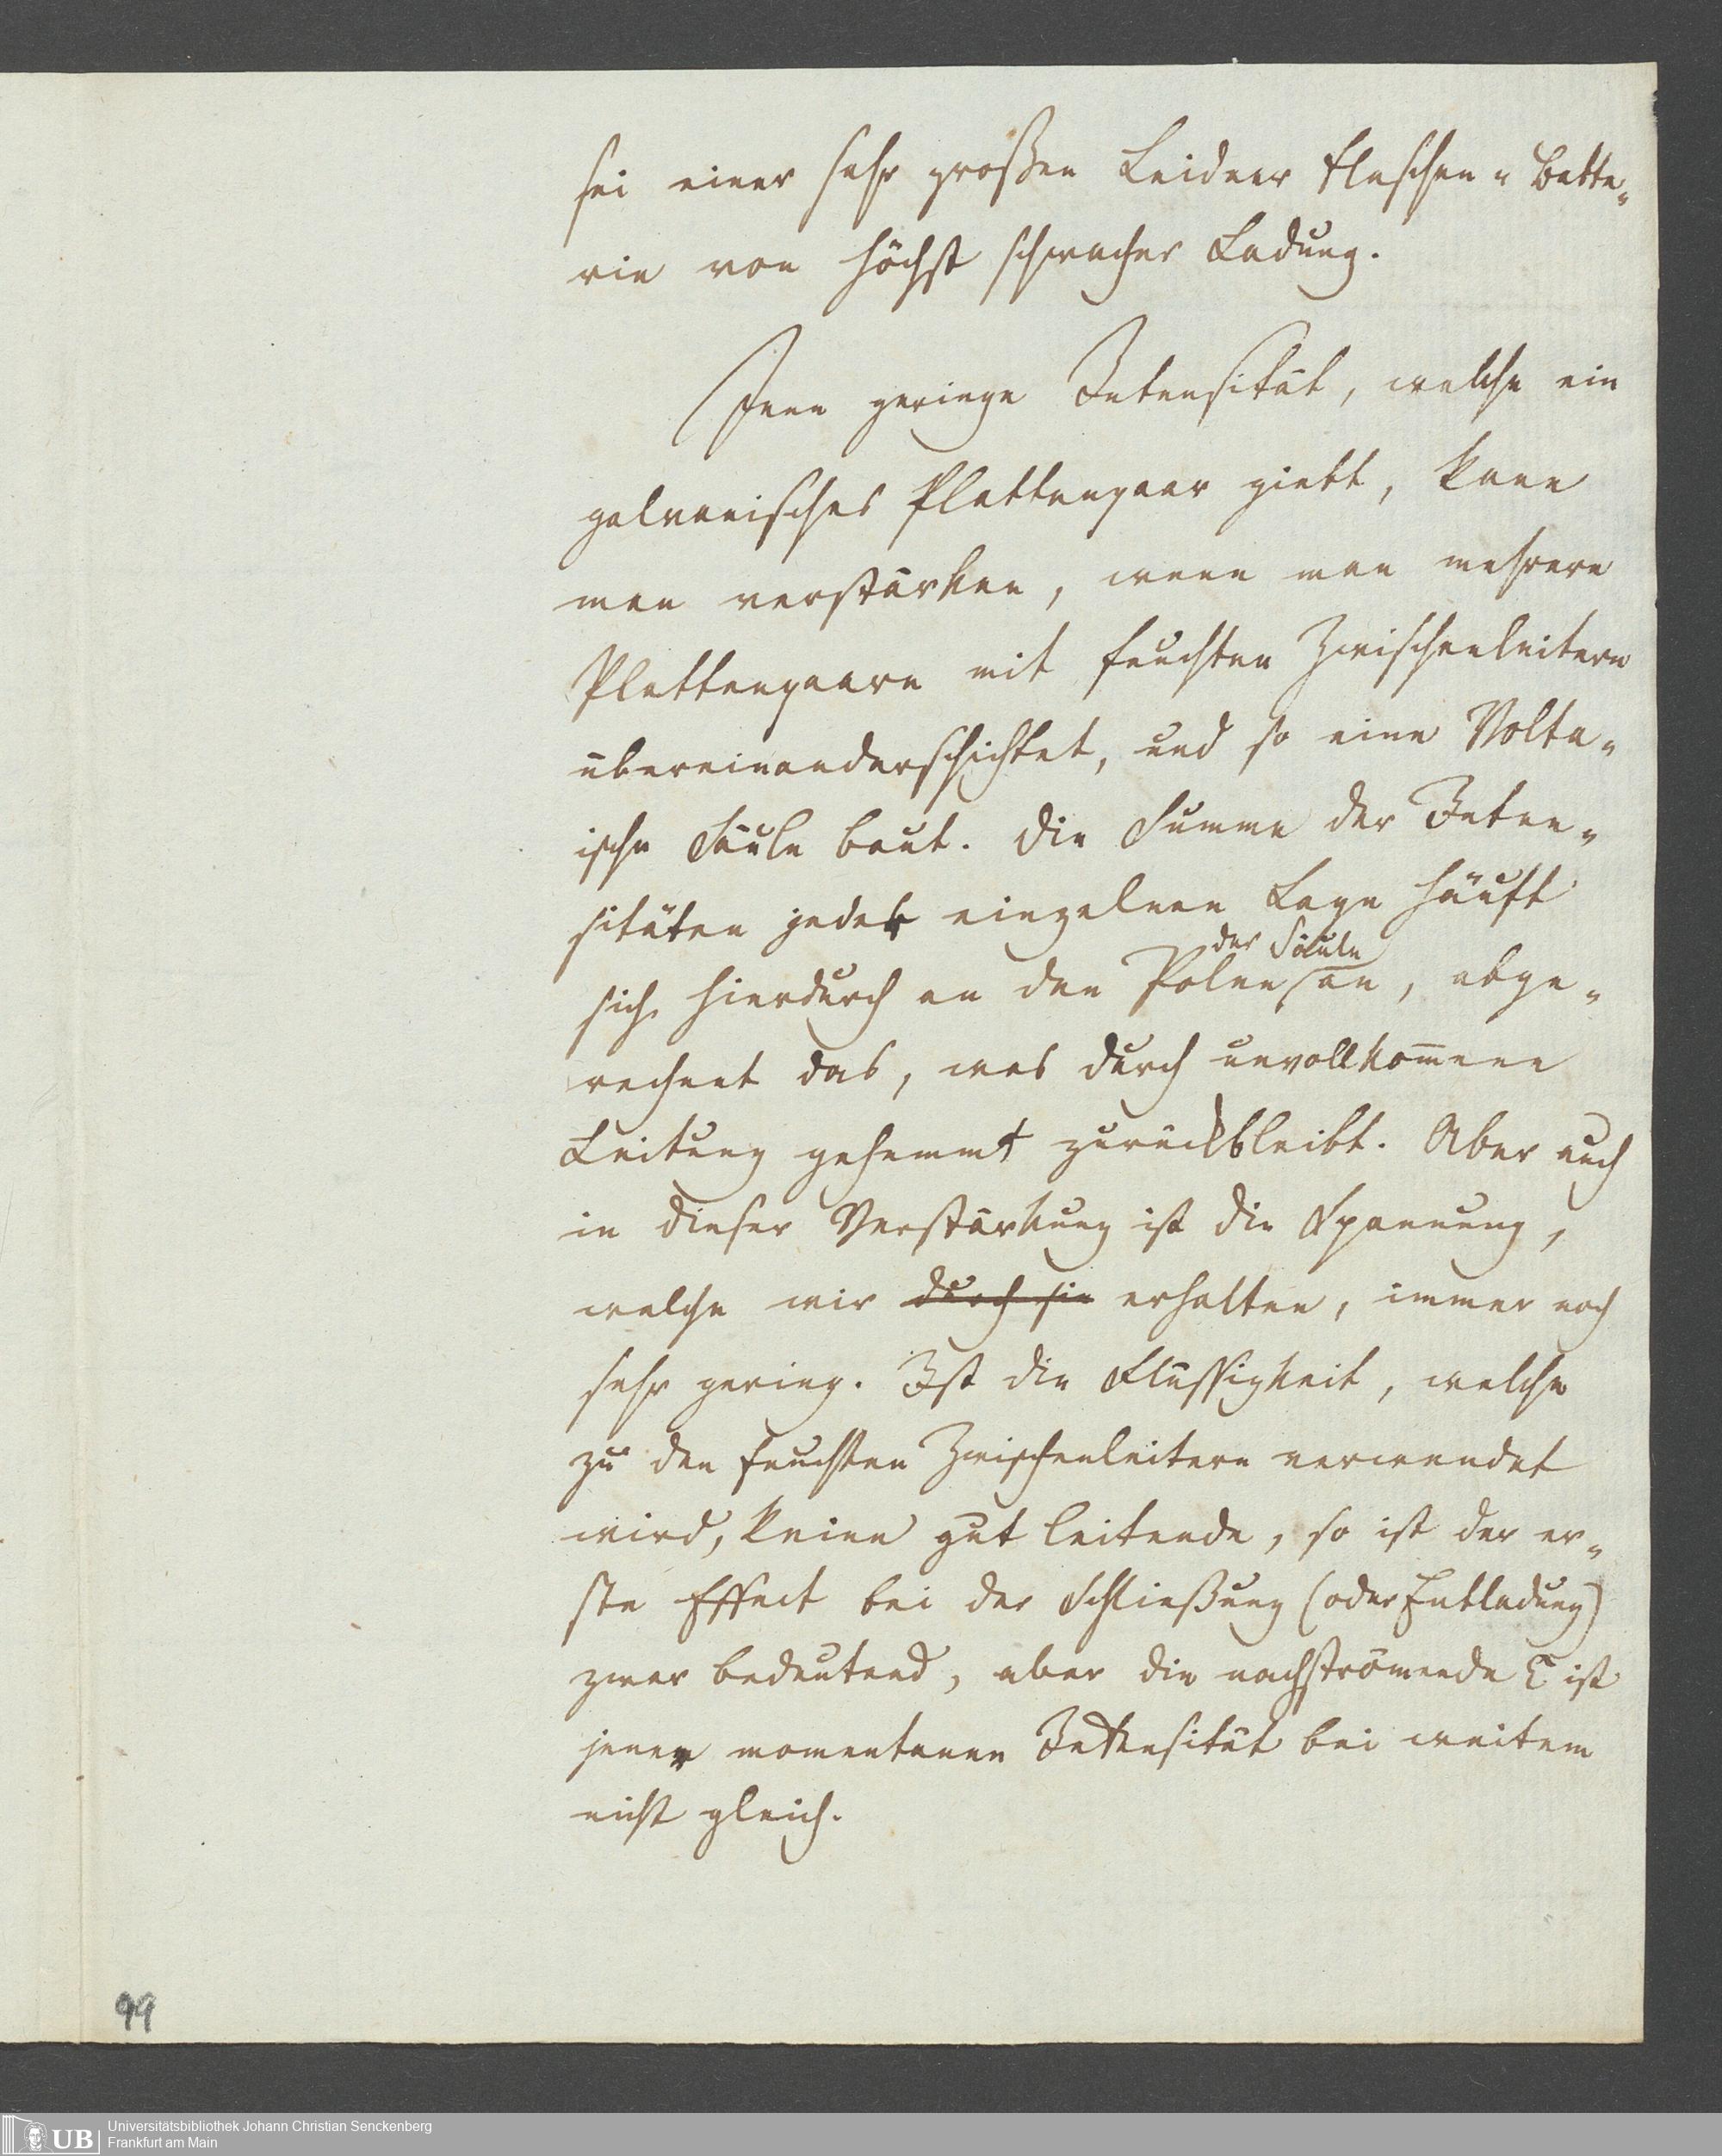 sei einer sehr großen Leidner Flaschen-Batte-
rie von höchst schwacher Ladung.
Jene geringe Intensität, welche ein
galvanisches Plattenpaar giebt, kann
man verstärken, wenn man mehrere
Plattenpaare mit feuchten Zwischenleitern
übereinanderschichtet, und so eine Volta-
ische Säule baut. Die Summe der Inten-
sitäten jeder einzelnen Lage häuft
der Säule
sich hierdurch an den Polen an, abge-
rechnet das, was durch unvollkom̅ene
Leitung gehemmt zurückbleibt. Aber auch
in dieser Verstärkung ist die Spannung,
welche wir durch sie erhalten, immer noch
sehr gering. Ist die Flüssigkeit, welche
zu den feuchten Zwischenleitern verwendet
wird, keine gut leitende, so ist der er-
ste Effect bei der Schließung (oder Entladung)
zwar bedeutend, aber die nachströmende E ist
jener momentanen Intensität bei weitem
nicht gleich.
99
UB
Universitätsbibliothek Johann Christian Senckenberg
Frankfurt am Main